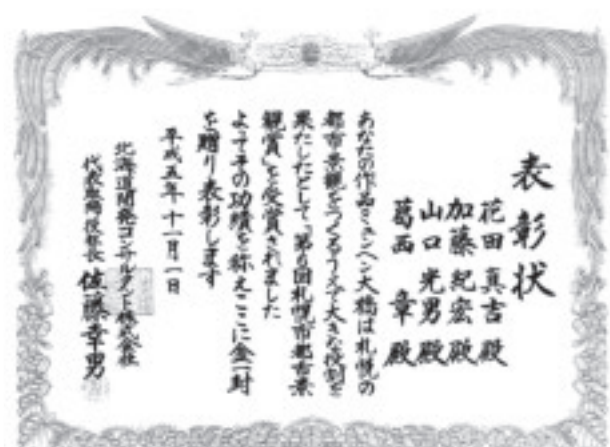 表彰状
花田真吉殿
加藤紀宏殿
山口光男殿
葛西章殿
あなたの作品ミュンヘン大橋は札幌の
都市景観をつくるうえで大きな役割を
果たしたとして「第6回札幌市都市景
観賞」を受賞されました
よってその功績を称えここに金一封
を贈り表彰します
平成五年十一月一日
北海道開発コンサルタント株式会社
代表取締役社長 佐藤幸男